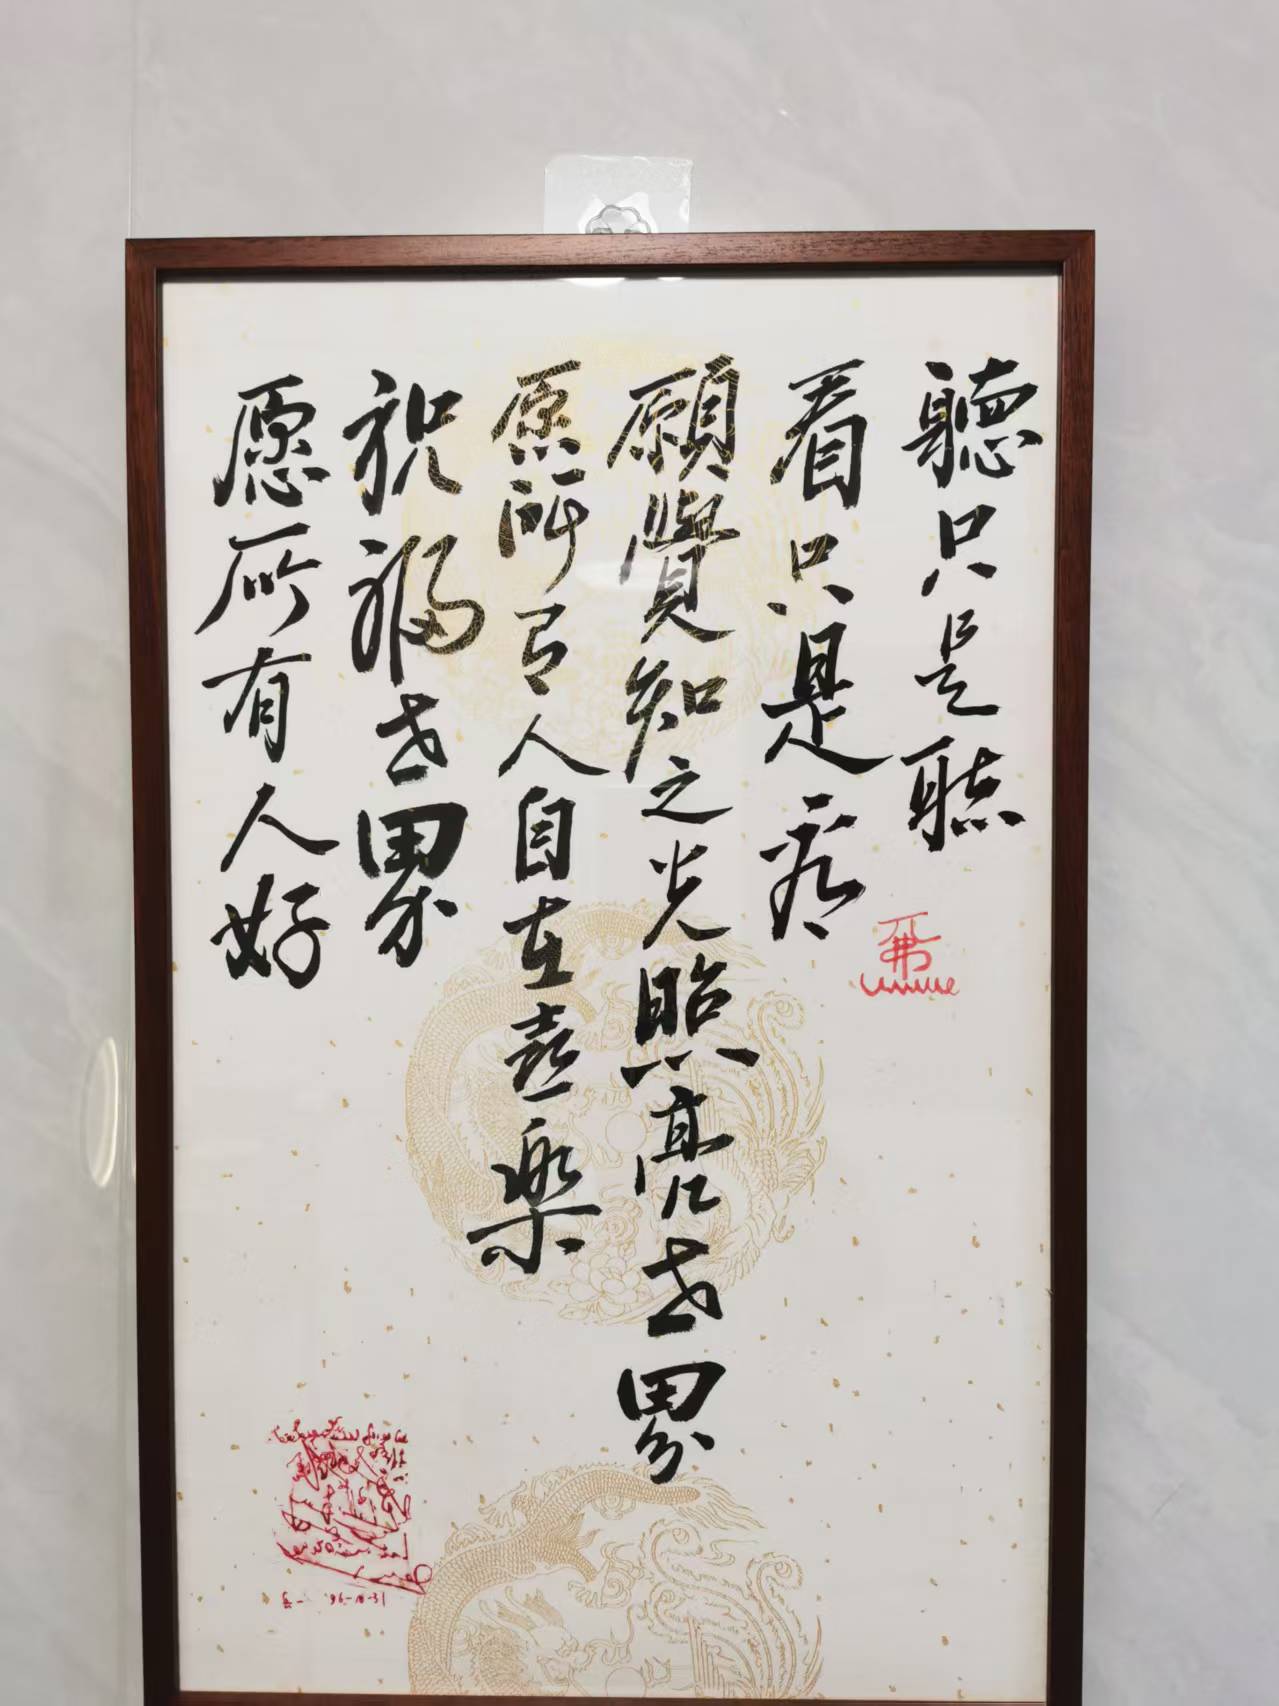 聽只是聽
看只是看
願覺知之光照亮世界
愿所有人自在喜樂
祝福世界
愿所有人好
96-10-31